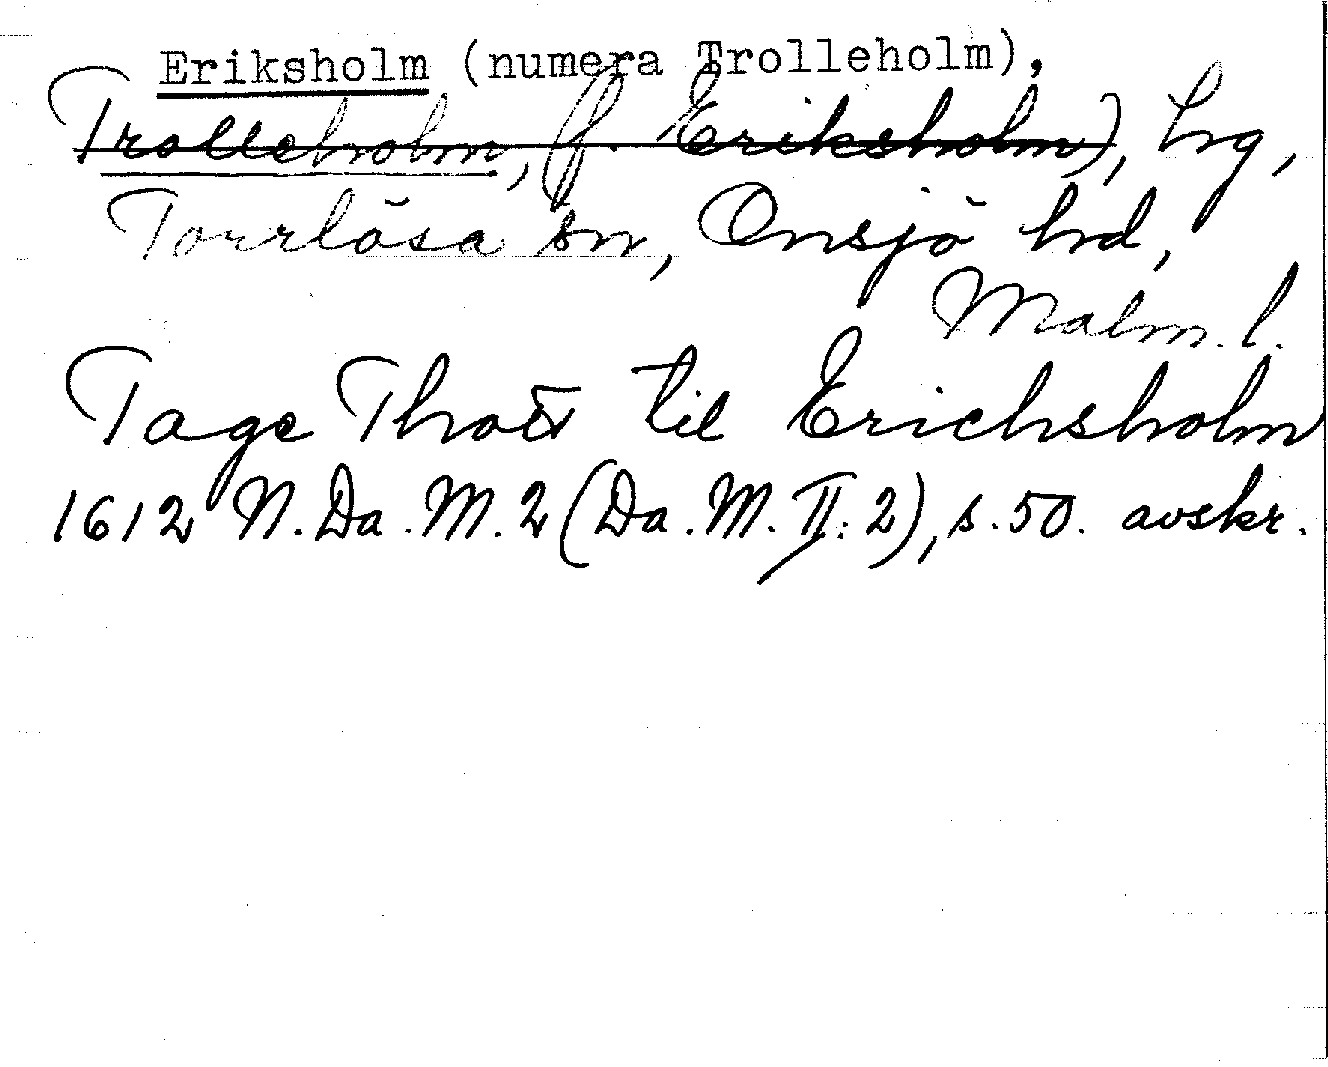 Eriksholm (numera Trolleholm),
Trolleholm, (f. Eriksholm), hrg,
Torrlösa sn, Onsjö hrd,
Malm. l.
Tage Thott til Erichsholm
1612 N. Da. M. 2 (Da. M. II: 2), s. 50. avskr.